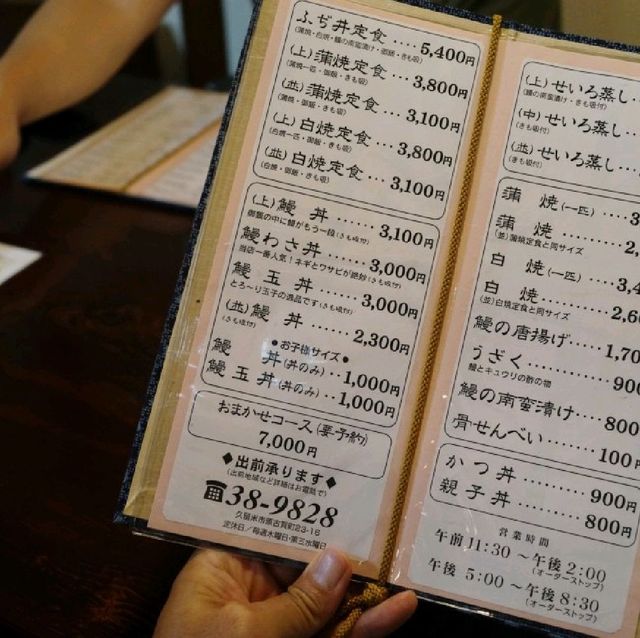 ふぢ丼定食‥‥5,400円
(蒲焼・白焼・鰻の南蛮漬け・御飯・きも吸)
(上)蒲焼定食‥‥3,800円
(蒲焼一匹・御飯・きも吸)
(並)蒲焼定食‥‥3,100円
(蒲焼・御飯・きも吸)
(上)白焼定食‥‥3,800円
(白焼一匹・御飯・きも吸)
(並)白焼定食‥‥3,100円
(白焼・御飯・きも吸)
(上)鰻 丼‥‥‥3,100円
御飯の中に鰻がもう一段(きも吸付)
鰻わさ丼‥‥‥3,000円
当店一番人気!ネギとワサビが絶妙(きも吸付)
鰻玉丼‥‥‥3,000円
とろ～り玉子の逸品です(きも吸付)
(並)鰻 丼‥‥‥2,300円
(きも吸付)
●お子様サイズ●
鰻 丼(丼のみ)‥1,000円
鰻玉丼(丼のみ)‥1,000円
おまかせコース(要予約)
7,000円
◆出前承ります◆
(出前地域など詳細はお電話で)
☎38-9828
久留米市原古賀町23-16
定休日/毎週木曜日・第三水曜日
(上)せいろ蒸し‥
(鰻の南蛮漬け・きも吸付)
(中)せいろ蒸し‥
(きも吸付)
(並)せいろ蒸し‥
(きも吸付)
蒲 焼(一匹)‥‥3
蒲 焼‥‥‥‥2,
(並)蒲焼定食と同サイズ
白 焼(一匹)‥‥3,4
白 焼‥‥‥‥2,60
(並)白焼定食と同サイズ
鰻の唐揚げ‥‥1,70
うざく‥‥‥‥900
鰻とキュウリの酢の物
鰻の南蛮漬け‥‥800
骨せんべい‥‥‥100円
かつ丼‥‥‥‥900円
親子丼‥‥‥‥800円
営業時間
午前11:30～午後2:00
(オーダーストップ)
午後5:00～午後8:30
(オーダーストップ)